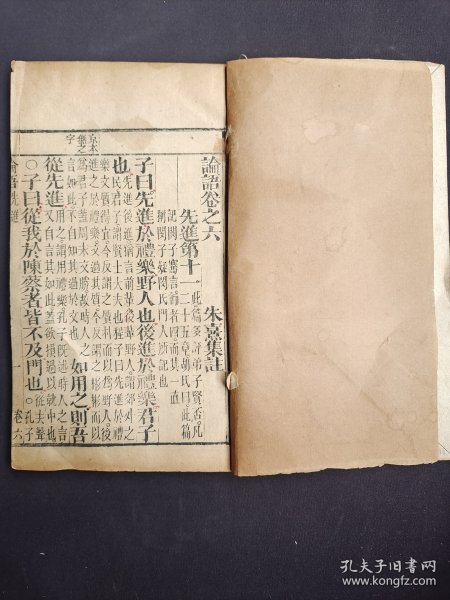 論語卷之六
朱熹集註
先進第十一
此篇多評弟子賢否凡
二十五章胡氏曰此篇
記閔子騫言行者四而其一直
稱閔子疑閔氏門人所記也
子曰先進於禮樂野人也後進於禮樂君子
也
先進後進猶言前輩後輩野人謂郊外之
民君子謂賢士大夫也程子曰先進於禮
樂文質得宜今反謂之質朴而以爲野人後
進之於禮樂文過其質今反謂之彬彬而以
爲君子蓋周末文勝故時人之
言如此不自知其過於文也
如用之則吾
從先進
用之謂用禮樂孔子既述時人之言
又自言其如此蓋欲損過以就中也
○子曰從我於陳蔡者皆不及門也
從去聲
○孔子
論語先進
一
卷六
孔夫子旧书网
www.kongfz.com